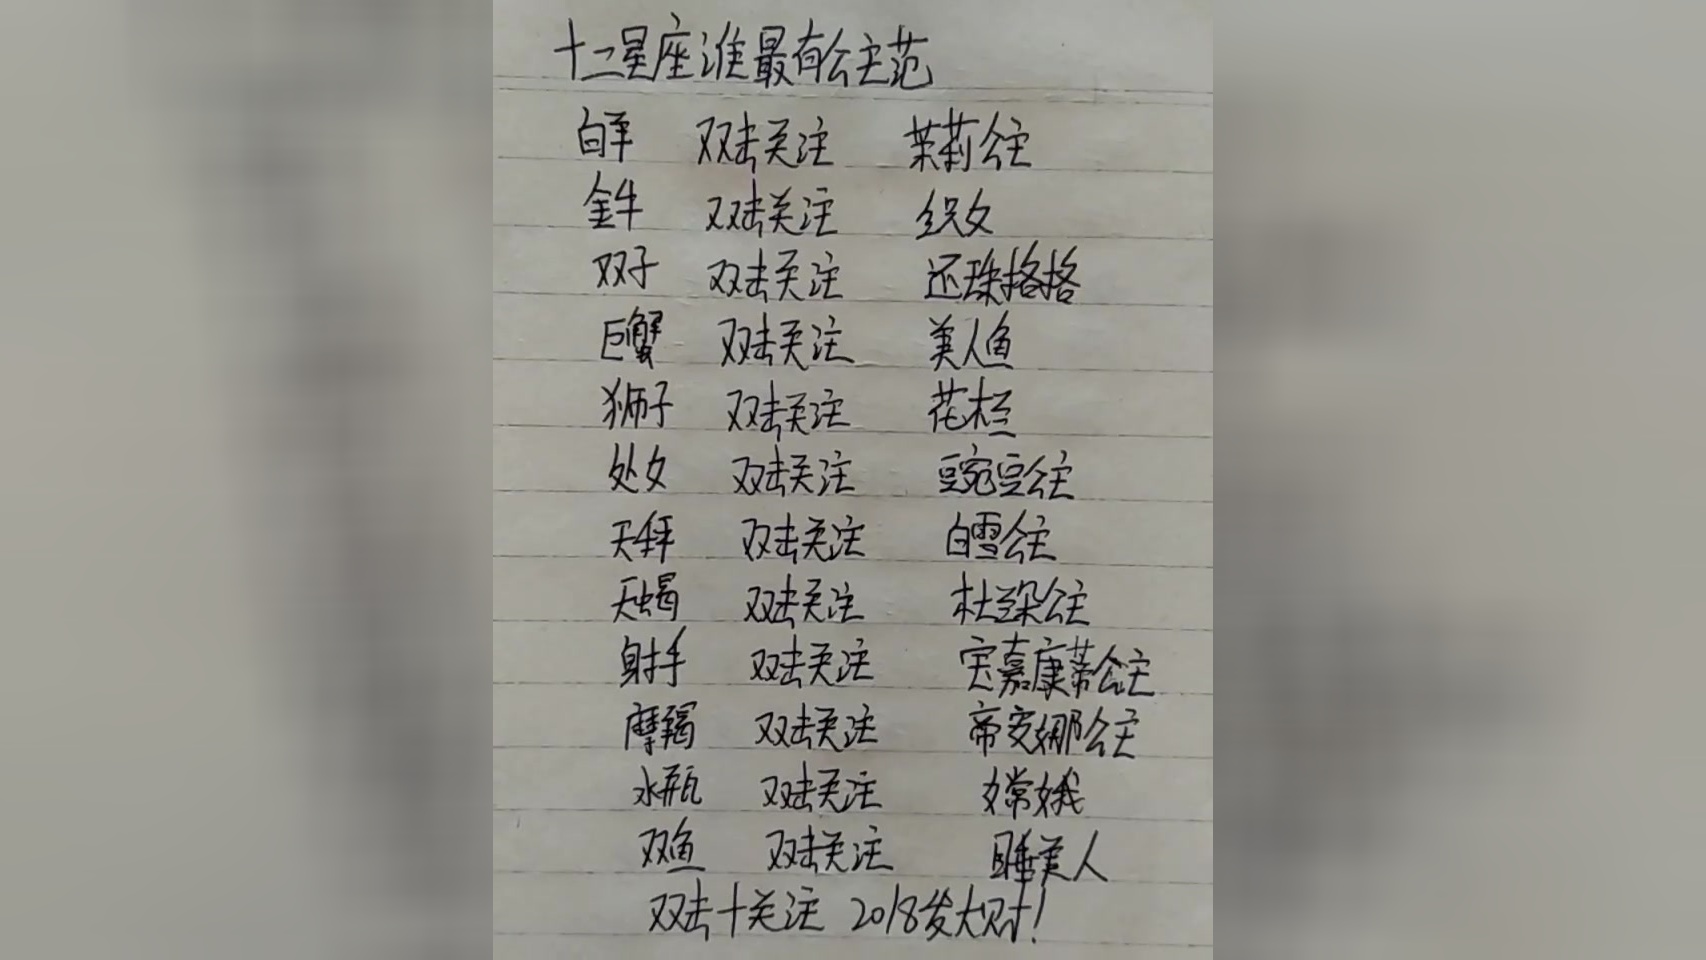 十二星座谁最有公主范
白羊 双击关注 茉莉公主
金牛 双击关注 织女
双子 双击关注 还珠格格
巨蟹 双击关注 美人鱼
狮子 双击关注 花木兰
处女 双击关注 豌豆公主
天秤 双击关注 白雪公主
天蝎 双击关注 杜兰朵公主
射手 双击关注 宝嘉康蒂公主
摩羯 双击关注 帝安娜公主
水瓶 双击关注 嫦娥
双鱼 双击关注 睡美人
双击十关注 2018发大财!